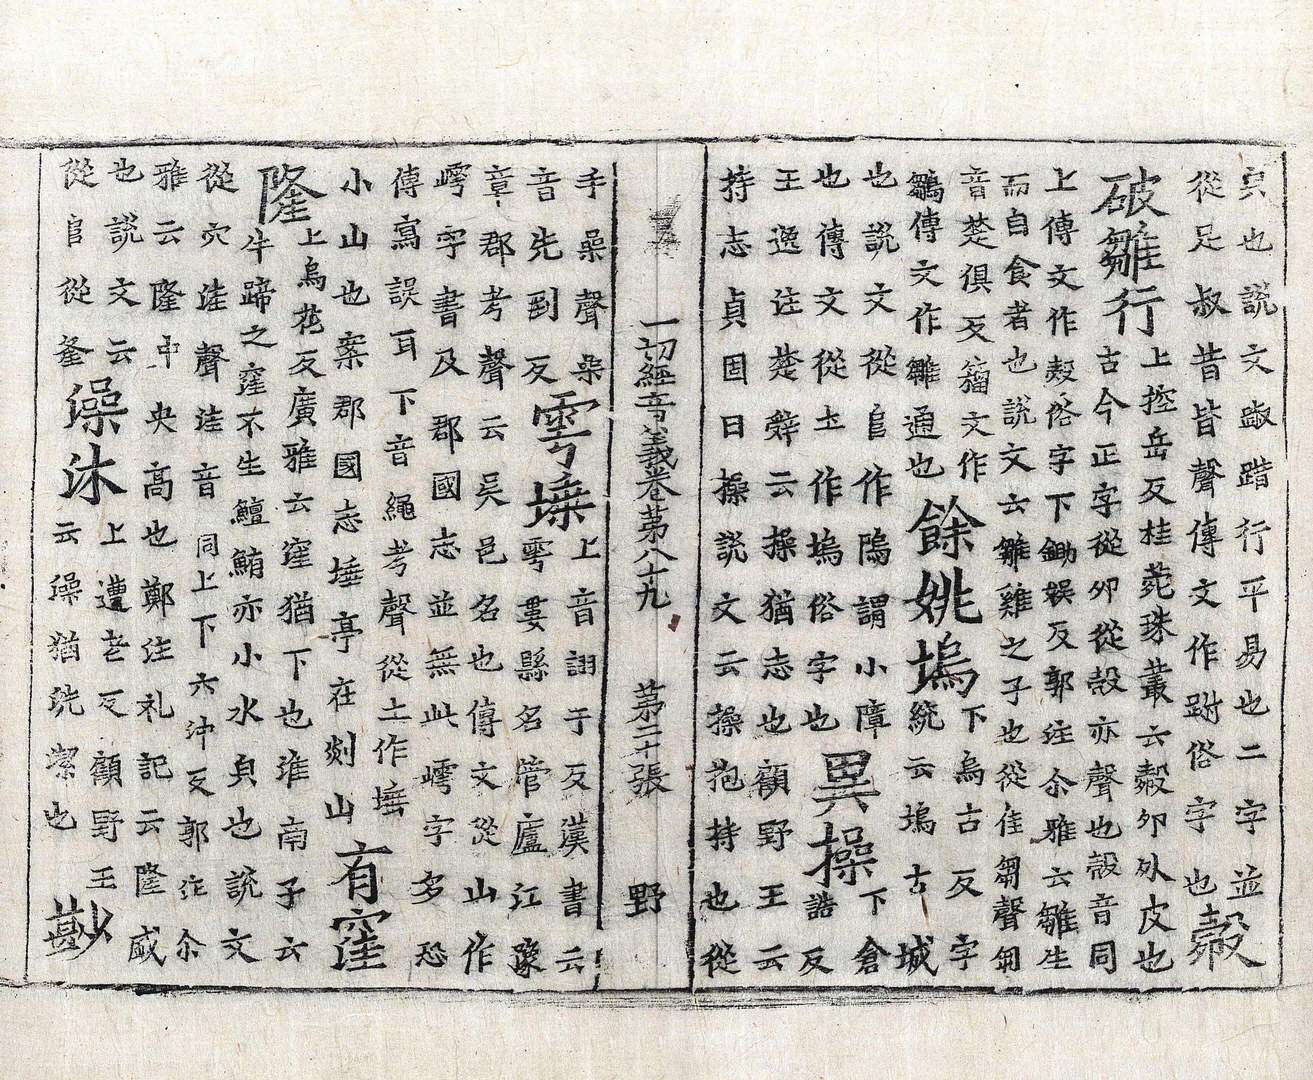 㒵也說文踧踖行平易也二字並
從足叔昔皆聲傳文作踿俗字也㲉
破雛行上控岳反桂菀珠叢云㲉卵外皮也
古今正字從卵從㱿亦聲也㱿音同
上傳文作㲉俗字下鋤娛反郭注尒雅云雛生
而自食者也說文云雛雞之子也從隹芻聲芻
音楚俱反籀文作
鶵傳文作雛通也餘姚塢下烏古反字
統云塢古城
也說文從𨸏作隖謂小障
也傳文從土作塢俗字也異操下倉
誥反
王逸注楚辭云操猶志也顧野王云
持志貞固曰操說文云操菢持也從
一切經音義卷第八十九 第二十張 野
手喿聲喿
音先到反雩埭上音詡于反漢書云
雩婁縣名管廬江豫
章郡考聲云吳邑名也傳文從山作
嶀字書及郡國志並無此嶀字多恐
傳寫誤耳下音繩考聲從土作塍
小山也案郡國志埵亭在剡山有窪
隆上烏花反廣雅云窪猶下也淮南子云
牛蹄之窪不生鱣鮪亦小水㒵也說文
從穴洼聲洼音同上下六沖反郭注尒
雅云隆中央高也鄭注礼記云隆盛
也說文云
從𨸏從夅澡沐上遭老反顧野王
云澡猶洗潔也尠